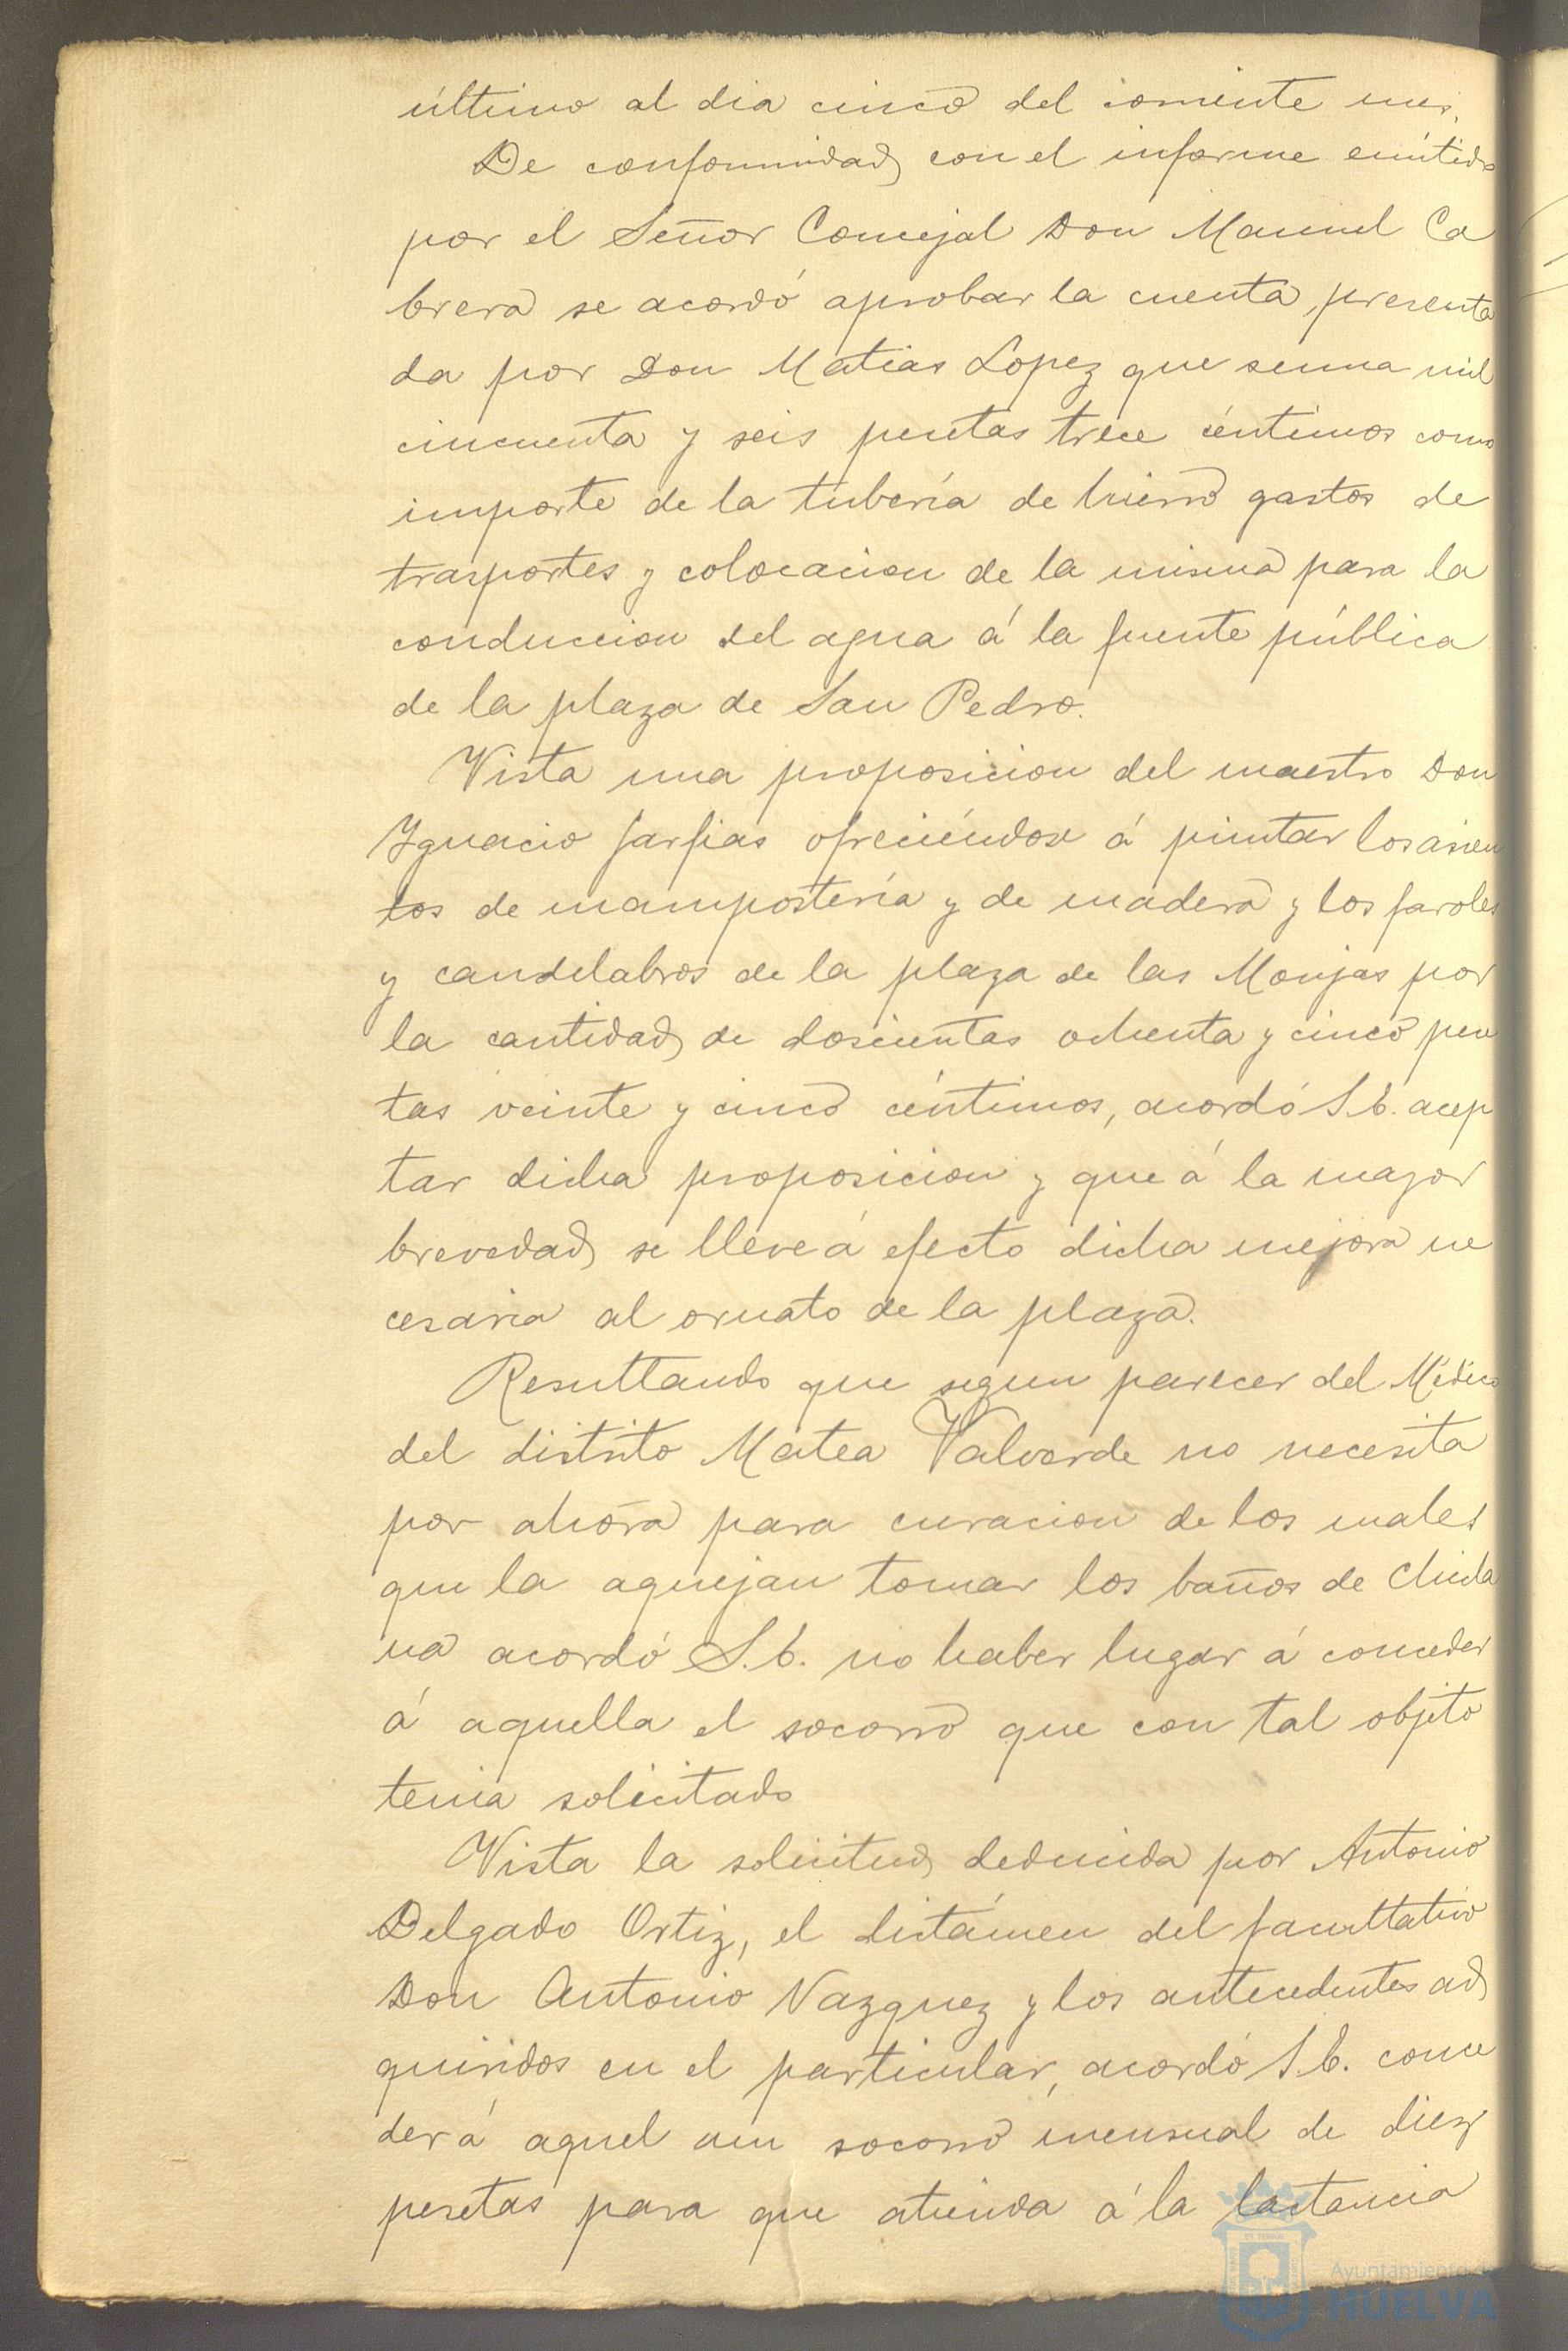 último al dia cinco del corriente mes.
De conformidad con el informe emitido
por el Señor Concejal Don Manuel Ca
brera se acordó aprobar la cuenta presenta
da por Don Matias Lopez que suma mil
cincuenta y seis pesetas trece céntimos como
importe de la tubería de hierro gastos de
trasportes y colocacion de la misma para la
conduccion del agua á la fuente pública
de la plaza de San Pedro.
Vista una proposicion del maestro Don
Ygnacio farfias ofreciéndose á pintar los asien
tos de mampostería y de madera y los faroles
y candelabros de la plaza de las Monjas por
la cantidad de doscientas ochenta y cinco pese
tas veinte y cinco céntimos, acordó S.C. acep
tar dicha proposicion y que á la mayor
brevedad se lleve á efecto dicha mejora ne
cesaria al ornato de la plaza.
Resultando que segun parecer del Médico
del distrito Matea Valverde no necesita
por ahora para curacion de los males
que la aquejan tomar los baños de Chicla
na acordó S.C. no haber lugar á conceder
á aquella el socorro que con tal objeto
tenia solicitado
Vista la solicitud deducida por Antonio
Delgado Ortiz, el dictámen del facultativo
Don Antonio Vazquez y los antecedentes ad
quiridos en el particular, acordó S.C. conce
der á aquel un socorro mensual de diez
pesetas para que atienda á la lactancia
Ayuntamiento de
HUELVA